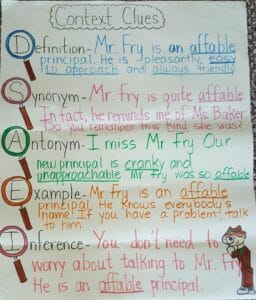 Context Clues
Definition- Mr. Fry is an affable
principal. He is pleasantly, easy
to approach and always friendly.
Synonym- Mr. Fry is quite affable.
In fact, he reminds me of Ms. Baker.
Do you remember how kind she was?
Antonym- I miss Mr. Fry Our
new principal is cranky and
unapproachable Mr. Fry was so affable
Example- Mr Fry is an affable
principal. He knows everybody's
name! If you have a problem, talk
to him.
Inference- You don't need to
worry about talking to Mr. Fry
He is an affable principal.